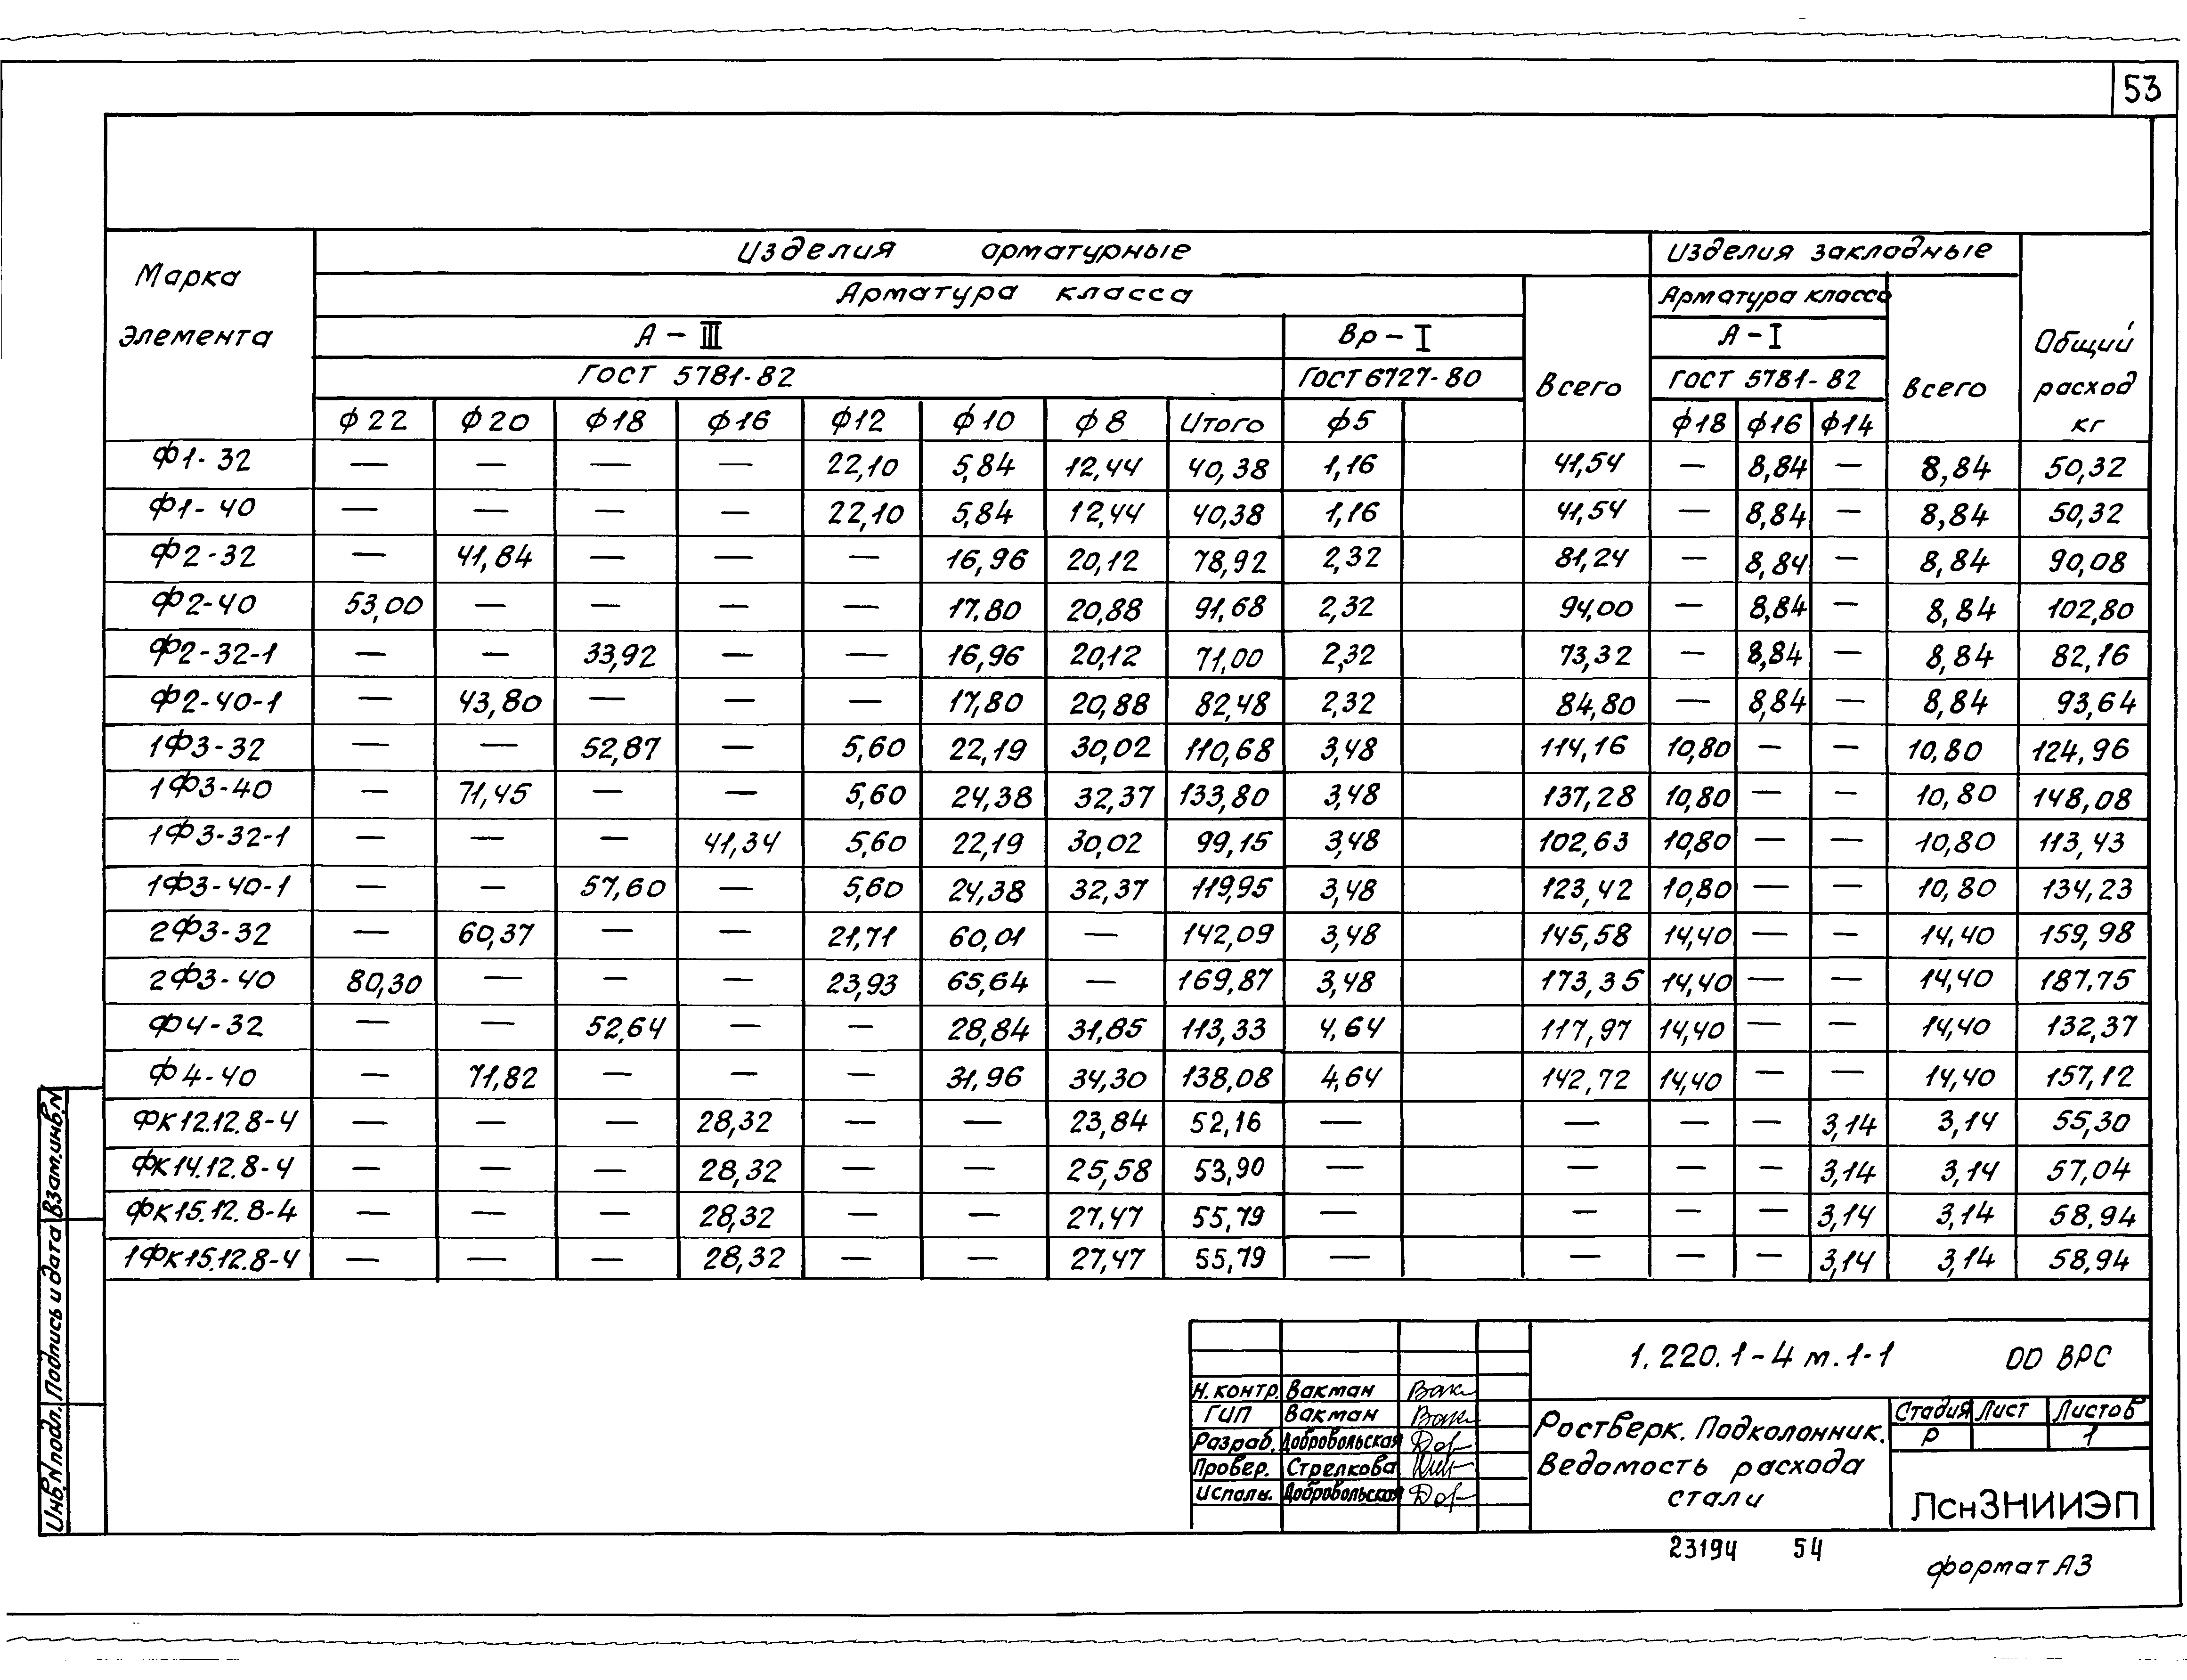 53
Марка элемента
Изделия арматурные
Изделия закладные
Общий расход кг
Арматура класса
Всего
Арматура класса
Всего
А-III
Вр-I
А-I
ГОСТ 5781-82
ГОСТ 6727-80
ГОСТ 5781-82
ф22 ф20 ф18 ф16 ф12 ф10 ф8 Итого ф5 ф18 ф16 ф14
Ф1-32 — — — — 22,10 5,84 12,44 40,38 1,16 41,54 — 8,84 — 8,84 50,32
Ф1-40 — — — — 22,10 5,84 12,44 40,38 1,16 41,54 — 8,84 — 8,84 50,32
Ф2-32 — 41,84 — — — 16,96 20,12 78,92 2,32 81,24 — 8,84 — 8,84 90,08
Ф2-40 53,00 — — — — 17,80 20,88 91,68 2,32 94,00 — 8,84 — 8,84 102,80
Ф2-32-1 — — 33,92 — — 16,96 20,12 71,00 2,32 73,32 — 8,84 — 8,84 82,16
Ф2-40-1 — 43,80 — — — 17,80 20,88 82,48 2,32 84,80 — 8,84 — 8,84 93,64
1Ф3-32 — — 52,87 — 5,60 22,19 30,02 110,68 3,48 114,16 10,80 — — 10,80 124,96
1Ф3-40 — 71,45 — — 5,60 24,38 32,37 133,80 3,48 137,28 10,80 — — 10,80 148,08
1Ф3-32-1 — — — 41,34 5,60 22,19 30,02 99,15 3,48 102,63 10,80 — — 10,80 113,43
1Ф3-40-1 — — 57,60 — 5,60 24,38 32,37 119,95 3,48 123,42 10,80 — — 10,80 134,23
2Ф3-32 — 60,37 — — 21,71 60,01 — 142,09 3,48 145,58 14,40 — — 14,40 159,98
2Ф3-40 80,30 — — — 23,93 65,64 — 169,87 3,48 173,35 14,40 — — 14,40 187,75
Ф4-32 — — 52,64 — — 28,84 31,85 113,33 4,64 117,97 14,40 — — 14,40 132,37
Ф4-40 — 71,82 — — — 31,96 34,30 138,08 4,64 142,72 14,40 — — 14,40 157,12
ФК12.12.8-4 — — — 28,32 — — 23,84 52,16 — — — — 3,14 3,14 55,30
ФК14.12.8-4 — — — 28,32 — — 25,58 53,90 — — — — 3,14 3,14 57,04
ФК15.12.8-4 — — — 28,32 — — 27,47 55,79 — — — — 3,14 3,14 58,94
1ФК15.12.8-4 — — — 28,32 — — 27,47 55,79 — — — — 3,14 3,14 58,94
Инв.N подл. Подпись и дата Взам.инв.N
1.220.1-4 м.1-1 00 ВРС
Н.контр. Вакман Вак
ГИП Вакман Вак
Разраб. Добровольская
Провер. Стрелкова
Исполн. Добровольская
Ростверк. Подколонник.
Ведомость расхода
стали
Стадия Лист Листов
Р 1
ЛенЗНИИЭП
23194 54
формат А3